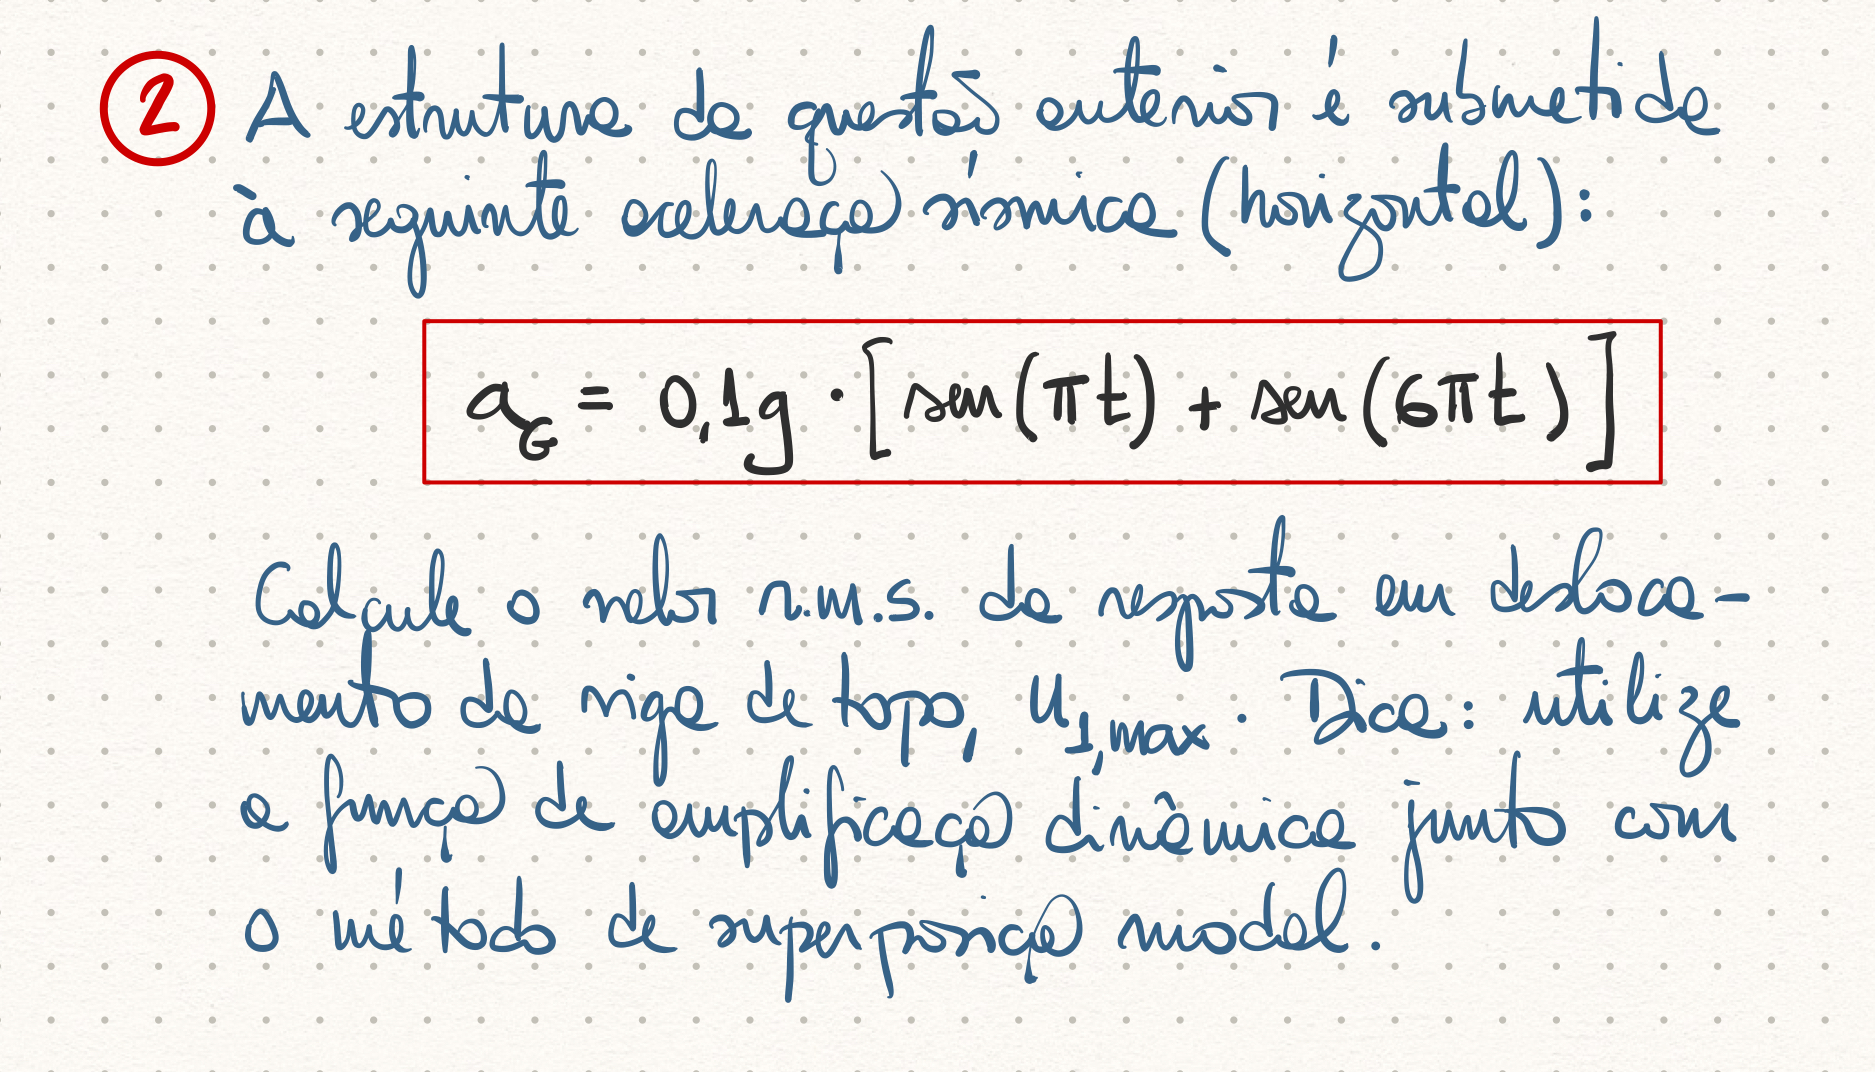 2 A estrutura da questão anterior é submetida
à seguinte aceleração sísmica (horizontal):
a_G = 0,1g · [sen(πt) + sen(6πt)]
Calcule o valor r.m.s. da resposta em desloca-
mento da viga de topo, u_1,max. Dica: utilize
a função de amplificação dinâmica junto com
o método de superposição modal.